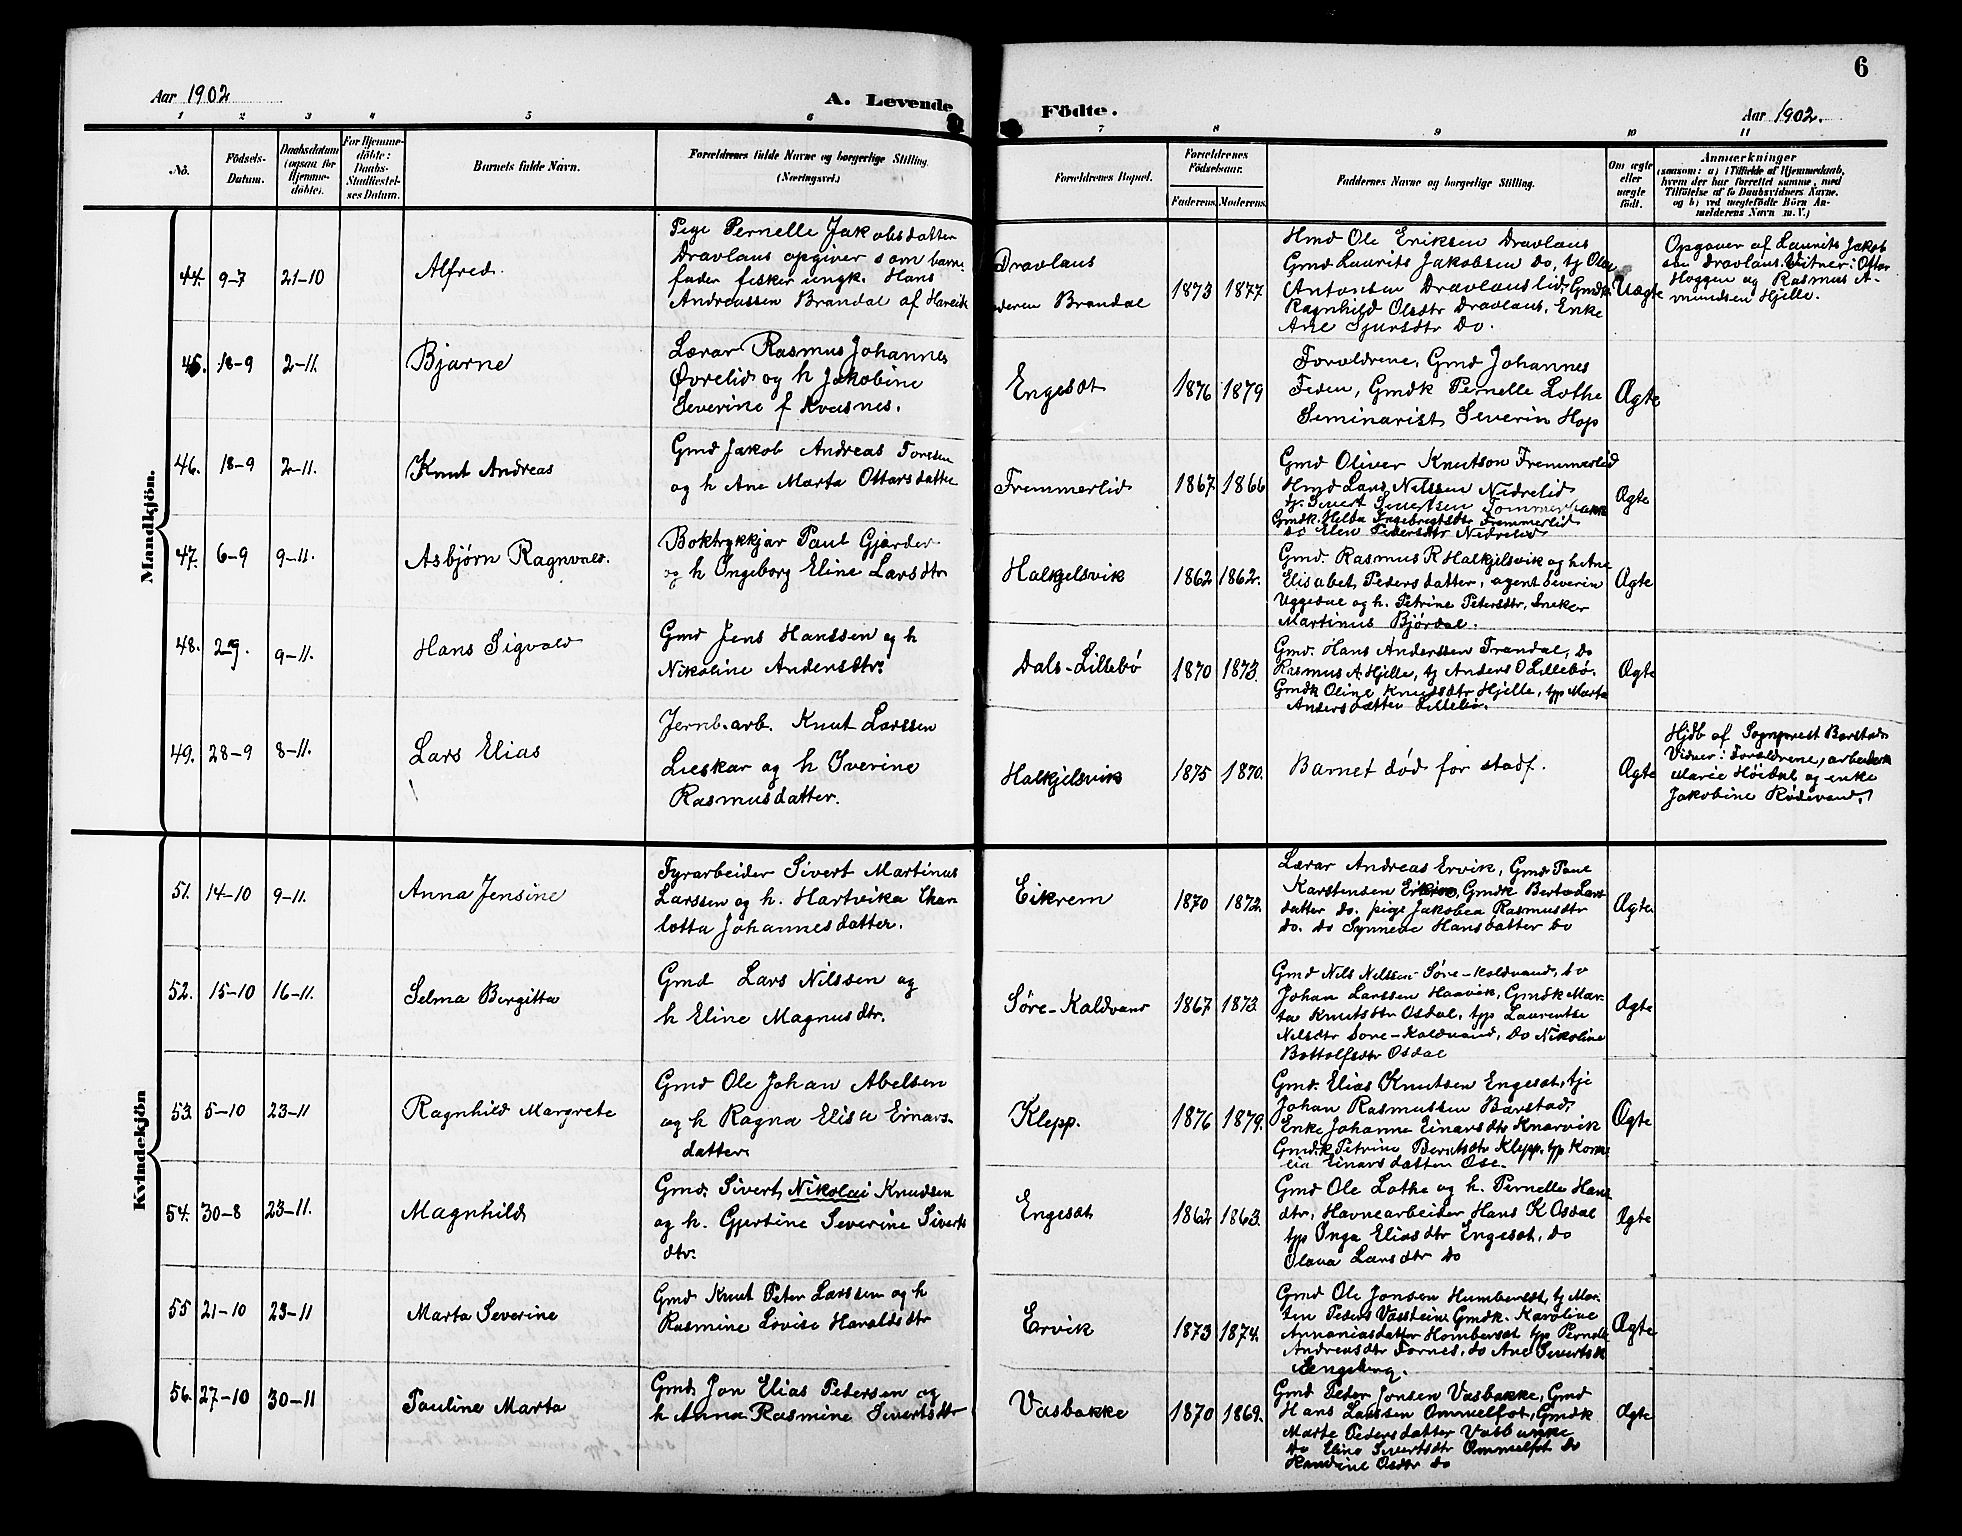 6
Aar 1902
A. Levende
Födte.
Aar 1902.
1 2 3 4 5 6 7 8 9 10 11
No.
Födsels-
Datum.
Daabsdatum
(ogsaa for
Hjemme-
döbte).
For Hjemme-
döbte:
Daabs-
Stadfæstel-
ses Datum.
Barnets fulde Navn.
Forældrenes fulde Navne og borgerlige Stilling
(Næringsvei.)
Forældrenes Bopæl.
Forældrenes
Födselsaar.
Faderens. Moderens.
Faddernes Navne og borgerlige Stilling.
Om ægte
eller
uægte
født.
Anmærkninger
(saasom: a) i Tilfælde af Hjemmedaab,
hvem der har forrettet samme, med
Tilføielse af to Daabsvidners Navne,
og b) ved uægtefödte Börn An-
melderens Navn m. V.)
Mandkjön.
44. 9-7 21-10 Alfred.
Pige Pernelle Jakobsdatter
Dravlaus opgiver som barn-
fader fisker ungk. Hans
Andreassen Brandal af Hareid
Dravlaus
deren Brandal
1873 1877
Hmd Ole Eriksen Dravlaus
Gmd Laurits Jakobsen do, tj Ole
Antonsen Dravlauslid, Gmdk
Ragnhild Olsdtr Dravlaus, Enke
Ane Sjursdtr do.
Uægte
Opgaver af Laurits Jakob
sen Dravlaus. Vitner: Ottar
Hoggen og Rasmus A-
mundsen Hjelle.
45. 18-9 2-11. Bjarne
Lærar Rasmus Johannes
Øvrelid og h Jakobine
Severine f Kvasnes.
Engeset
1876 1879
Forældrene, Gmd Johannes
Feden, Gmdk Pernelle Lothe
Seminarist Severin Hop
Ægte
46. 18-9 2-11. Knut Andreas
Gmd Jakob Andreas Toresen
og h Ane Marta Ottarsdatter
Fremmerlid
1867 1866
Gmd Oliver Knutson Fremmerlid
Hmd Lars Nilssen Nedrelid
tj. Sivert Sivertsen Tommerbakk
Gmdk. Helba Ingebrigtsdtr Fremmerlid
do Elen Pedersdtr Nedrelid
Ægte
47. 6-9 9-11. Asbjørn Ragnvald.
Boktrykkjar Paul Gjerder
og h Ingeborg Eline Larsdtr
Halkjelsvik
1862 1862.
Gmd. Rasmus R Halkjelsvik og h Ane
Elisabet Pedersdatter, agent Severin
Uggedal og h. Petrine Petersdtr, Sneker
Martinus Bjørdal.
Ægte
48. 2-9. 9-11. Hans Sigvald
Gmd Jens Hanssen og h
Nikoline Andersdtr.
Dals-Lillebø
1870 1873.
Gmd. Hans Anderssen Frandal, do
Rasmus A. Hjelle, tj Anders O Lillebø.
Gmdk Oline Knudsdtr Hjelle, tpp Marta
Andersdatter Lillebø.
Ægte
49. 28-9 8-11. Lars Elias
Jernb. arb. Knut Larssen
Lieskar og h Iverine
Rasmusdatter.
Halkjelsvik
1875 1870.
Barnet død før stadf.
Ægte
Hjdb af Sogneprest Barstad
Vidner: Forældrene, arbeidersk
Marie Høidal og enke
Jakobine Rødevand.
Kvindekjön
51. 14-10 9-11. Anna Jensine
Fyrarbeider Sivert Martinus
Larssen og h. Hartvika Char
lotta Johannesdatter.
Eikrem
1870 1872.
Lærar Andreas Ervik, Gmd Paul
Karstensen Gmdk Berta Lars
datter do. pige Jakobea Rasmusdtr
do. do Synneve Hansdatter do
Ægte.
52. 15-10 16-11. Selma Bergitta
Gmd Lars Nilssen og
h Eline Magnusdtr.
Søre-Kaldvand
1867 1873
Gmd Nils Nilssen Søre-Kaldvand, do
Johan Larssen Haavik, Gmdk Mar-
ta Knutsdtr Osdal, tpp Laurentse
Nilsdtr Søre-Kaldvand, do Nikoline
Bottolfsdtr Osdal
Ægte
53. 5-10 23-11 Ragnhild Margrete
Gmd Ole Johan Abelsen
og h Ragna Elisa Einars-
datter.
Klepp.
1876 1879.
Gmd. Elias Knutsen Engeset, tje
Johan Rasmussen Barstad,
Enke Johanne Einarsdtr Knarvik
Gmdk Petrine Berntsdtr Klepp, tpp Korn
elia Einarsdatter Ose.
Ægte
54. 30-8 23-11. Magnhild
Gmd. Sivert Nikolai Knudsen
og h. Gjertine Severine Siverts
dtr.
Engeset
1862 1863.
Gmd Ole Lothe og h. Pernelle Hans
dtr, Havnearbeider Hans K Osdal
tpp Inga Eliasdtr Engeset, do
Olava Larsdtr do
Ægte
55 21-10 23-11 Marta Severine
Gmd Knut Peter Larssen og h
Rasmine Lovise Haraldsdtr
Ervik
1873 1874.
Gmd Ole Jonsen Humberset, tj Mar-
tin Peders Vassteins Gmdk. Karoline
Annaniasdatter Homberset tpp Pernelle
Andreasdtr Fornes, do Ane Sivertsdtr
Lengeberg.
Ægte
56. 27-10 30-11 Pauline Marta
Gmd. Jon Elias Pedersen og
h Anna Rasmine Sivertsdtr
Vasbakke
1870 1869.
Gmd Peder Jonsen Vasbakke, Gmd
Hans Larssen Ommelfot, Gmdk
Marte Pedersdatter Vasbakke
do Eline Sivertsdtr Ommelfot do
Randine Osdtr do
Ægte